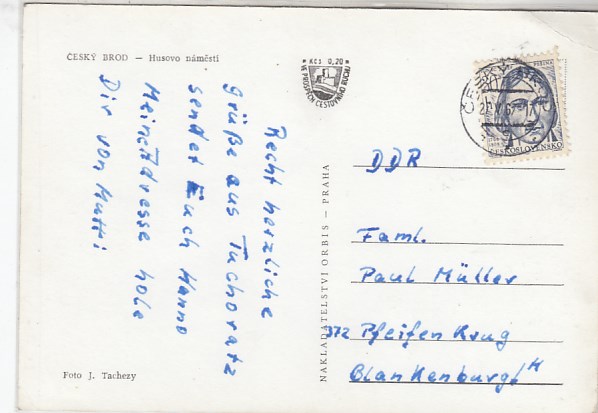 ČESKÝ BROD — Husovo náměstí
Kčs 0,20
VE PROSPĚCH CESTOVNÍHO RUCHU
ČESKOSLOVENSKO
Recht herzliche
Grüße aus Tuchoratz
sendet Euch Hanno
Meine Adresse hole
Dir von Mutti
NAKLADATELSTVÍ ORBIS — PRAHA
DDR
Faml.
Paul Müller
372 Pfeifen Krug
Blankenburg/H
Foto J. Tachezy